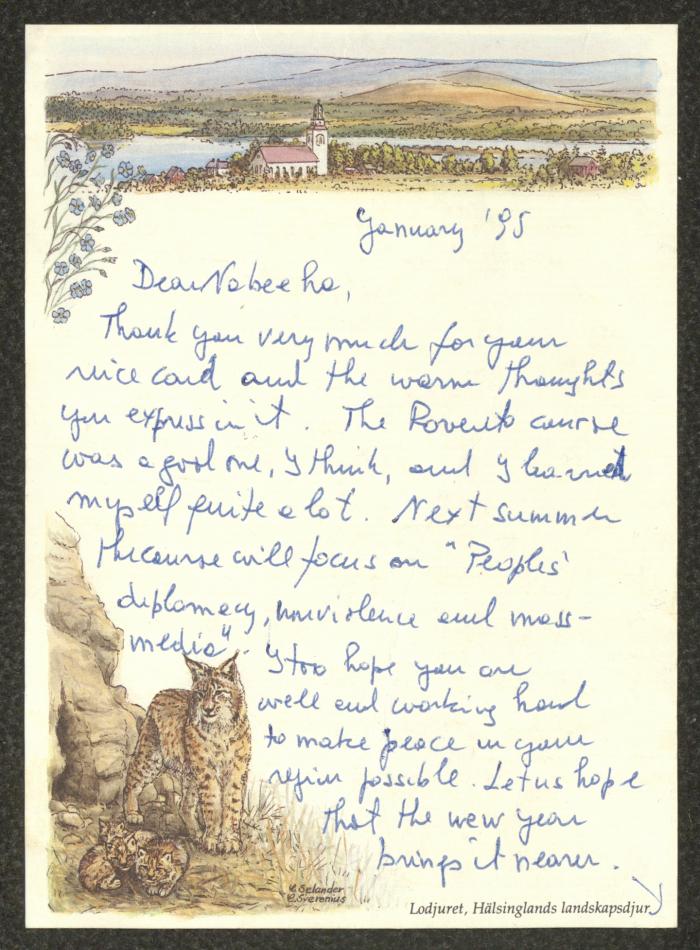 January '95
Dear Nabeeha,
Thank you very much for your
nice card and the warm thoughts
you express in it. The Rovereto course
was a good one, I think, and I learned
myself quite a lot. Next summer
the course will focus on "Peoples'
diplomacy, nonviolence and mass-
media". I too hope you are
well and working hard
to make peace in your
region possible. Let us hope
that the new year
brings it nearer.
C Selander
C Sverenius
Lodjuret, Hälsinglands landskapsdjur